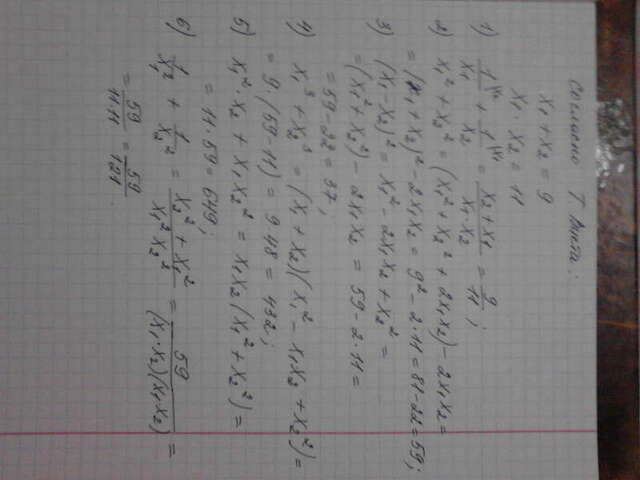 Согласно Т. Виета:
x₁ + x₂ = 9
x₁ · x₂ = 11
1) 1/x₁ + 1/x₂ = (x₂ + x₁)/(x₁ x₂) = 9/11;
2) x₁² + x₂² = (x₁² + x₂² + 2x₁x₂) - 2x₁x₂ =
= (x₁ + x₂)² - 2x₁x₂ = 9² - 2·11 = 81 - 22 = 59;
3) (x₁ - x₂)² = x₁² - 2x₁x₂ + x₂² =
= (x₁² + x₂²) - 2x₁x₂ = 59 - 2·11 =
= 59 - 22 = 37;
4) x₁³ + x₂³ = (x₁ + x₂)(x₁² - x₁x₂ + x₂²) =
= 9 (59 - 11) = 9·48 = 432;
5) x₁² · x₂ + x₁x₂² = x₁x₂(x₁² + x₂²) =
= 11 · 59 = 649;
6) 1/x₁² + 1/x₂² = (x₂² + x₁²)/(x₁² x₂²) = 59/((x₁·x₂)(x₁·x₂)) =
= 59/(11·11) = 59/121.